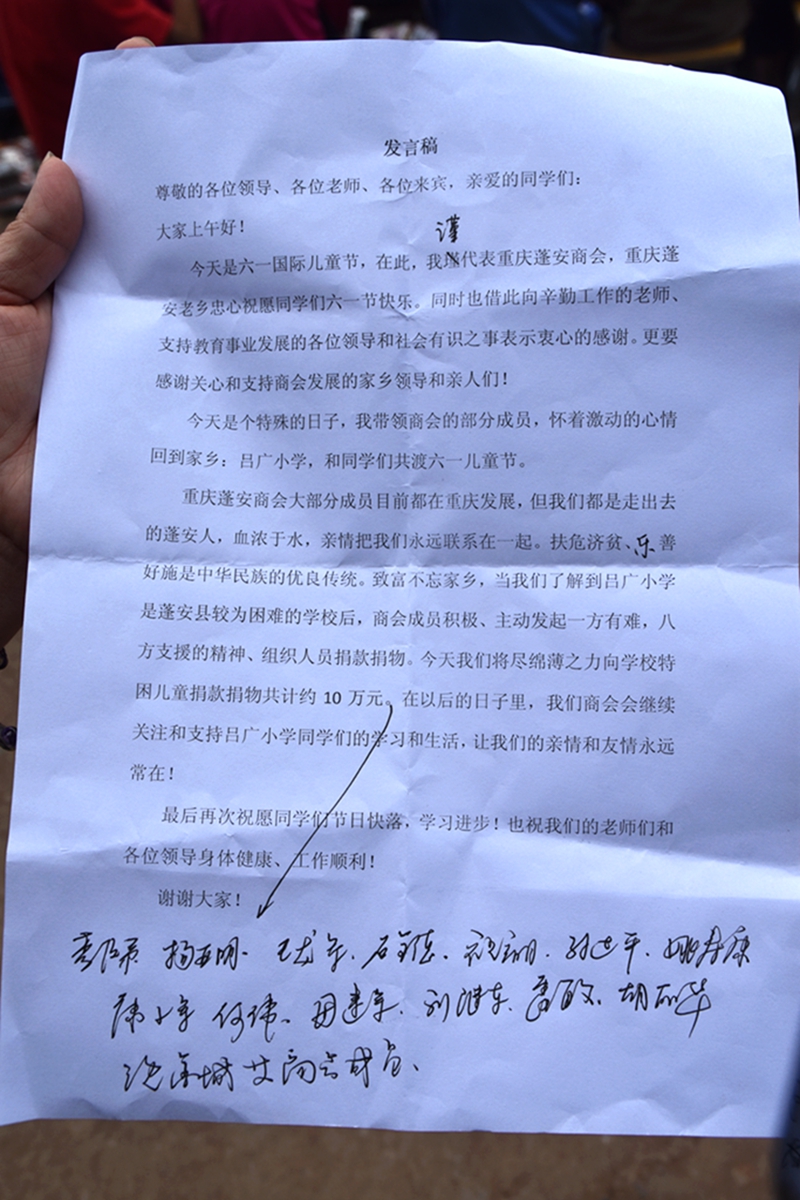 发言稿
尊敬的各位领导、各位老师、各位来宾，亲爱的同学们：
大家上午好！
谨
今天是六一国际儿童节，在此，我代表重庆蓬安商会，重庆蓬
安老乡忠心祝愿同学们六一节快乐。同时也借此向辛勤工作的老师、
支持教育事业发展的各位领导和社会有识之事表示衷心的感谢。更要
感谢关心和支持商会发展的家乡领导和亲人们！
今天是个特殊的日子，我带领商会的部分成员，怀着激动的心情
回到家乡：吕广小学，和同学们共渡六一儿童节。
重庆蓬安商会大部分成员目前都在重庆发展，但我们都是走出去
的蓬安人，血浓于水，亲情把我们永远联系在一起。扶危济贫、乐善
好施是中华民族的优良传统。致富不忘家乡，当我们了解到吕广小学
是蓬安县较为困难的学校后，商会成员积极、主动发起一方有难，八
方支援的精神、组织人员捐款捐物。今天我们将尽绵薄之力向学校特
困儿童捐款捐物共计约 10 万元。在以后的日子里，我们商会会继续
关注和支持吕广小学同学们的学习和生活，让我们的亲情和友情永远
常在！
最后再次祝愿同学们节日快落，学习进步！也祝我们的老师们和
各位领导身体健康、工作顺利！
谢谢大家！
何伟、
商会成员、